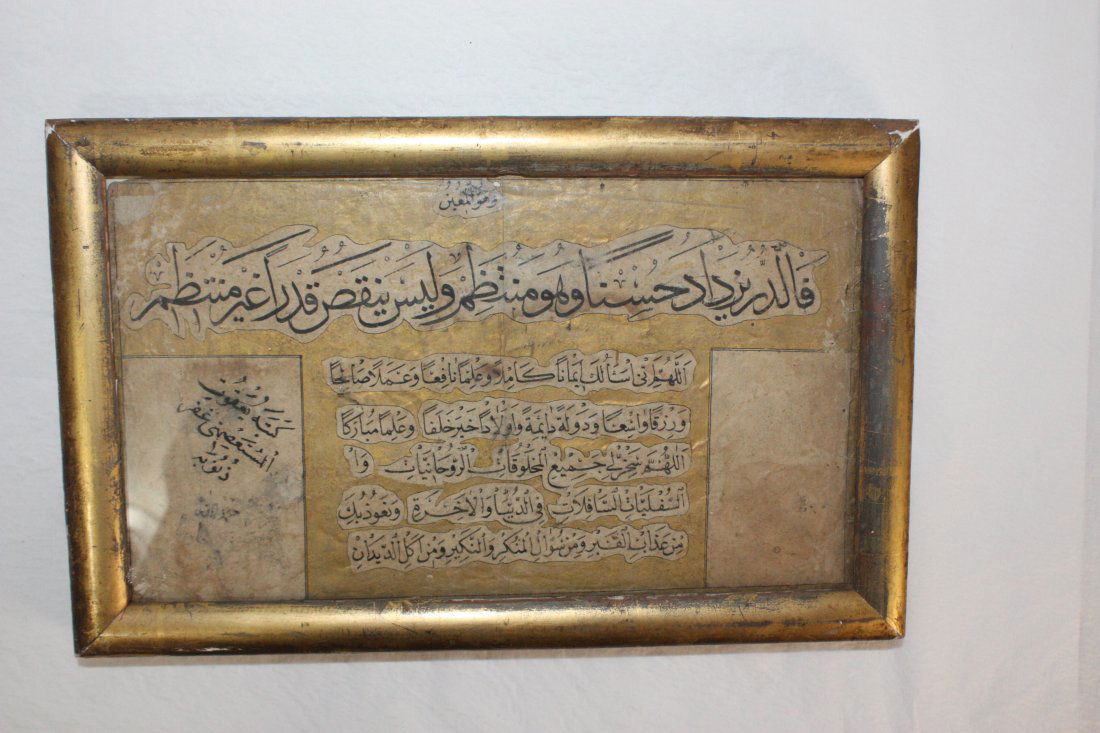 وهو المعين
فَالدُّرُّ يَزْدَادُ حُسْنًا وَهُوَ مُنْتَظِمٌ وَلَيْسَ يَنْقُصُ قَدْرًا غَيْرَ مُنْتَظِمِ
اَللّٰهُمَّ اِنّى اَسْأَلُكَ اِيمَانًا كَامِلًا وَعِلْمًا نَافِعًا وَعَمَلًا صَالِحًا
وَرِزْقًا وَاسِعًا وَدَوْلَةً دَائِمَةً وَاَوْلَادًا خَيْرَ خَلَفًا وَعِلْمًا مُبَارَكًا
اَللّٰهُمَّ سَخِّرْ لِى جَمِيعَ الْمَخْلُوقَاتِ الرُّوحَانِيَّاتِ وَا
السُّفْلِيَّاتِ السَّافِلَاتِ فِى الدُّنْيَا وَالْاٰخِرَةِ وَنَعُوذُ بِكَ
مِنْ عَذَابِ الْقَبْرِ وَمِنْ سُؤَالِ الْمُنْكَرِ وَالنَّكِيرِ وَمِنْ اَكْلِ الدِّيدَانِ
كتبه ياقوت
المستعصمى غفر
ذنوبه